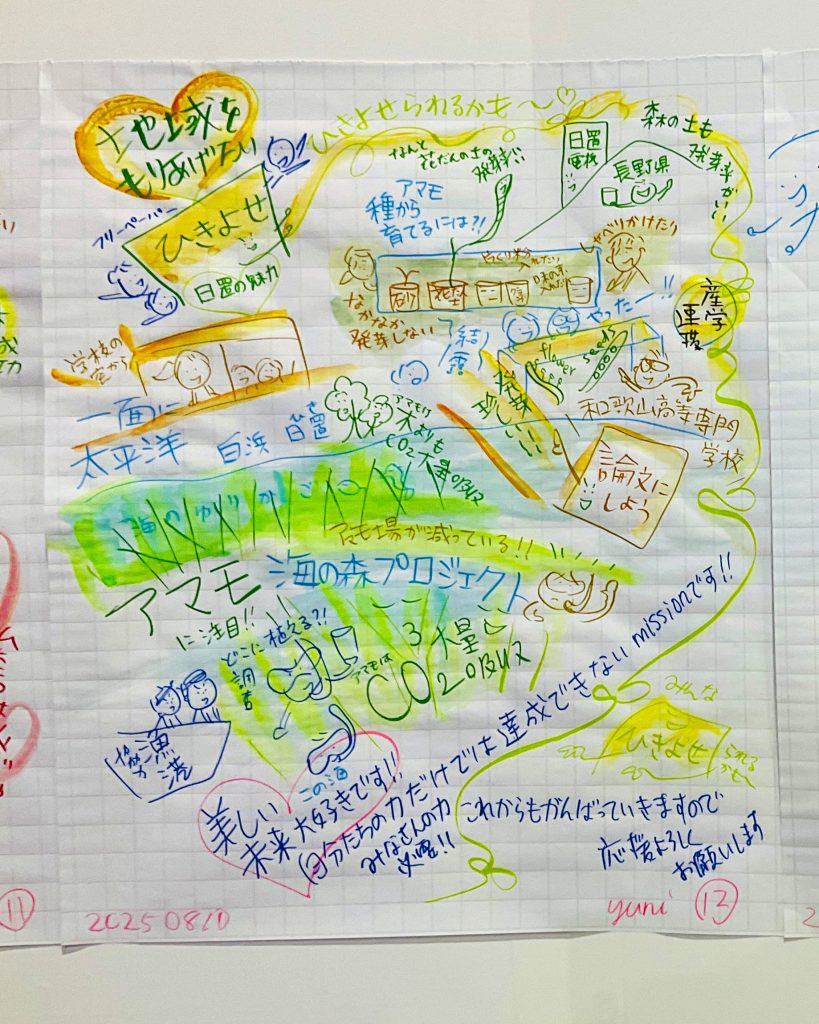 地域を
もりあげたい
ひきよせられるかも〜♡
なんと
花だんの土の
発芽が!!
日置
電機
森の土も
発芽率がいい
長野県
フリーペーパー
ひきよせ
日置の魅力
アマモ
種から
育てるには?!
しゃべりかけたり
砂
花壇
なかなか
発芽しない
結露
やったー!!
産学
連携
学校の
窓から
flower
seeds
発芽
いい
一面に
太平洋 白浜 日置
ひき
アマモは
木よりも
CO2大量吸収
和歌山高等専門
学校
論文に
しよう
海のゆりかご
アマモ場が減っている!!
アマモ 海の森プロジェクト
に注目!!
どこに植える?!
調査
アマモは
CO2
大量
吸収
協力
漁港
この海
美しい
未来 大好きです!!
自分たちの力だけでは達成できないmissionです!!
みなさんの力
必要!!
みんな
ひきよせ
られる
かも〜
これからもがんばっていきますので
応援よろしく
お願いします
11
20250810
yuni 13
2